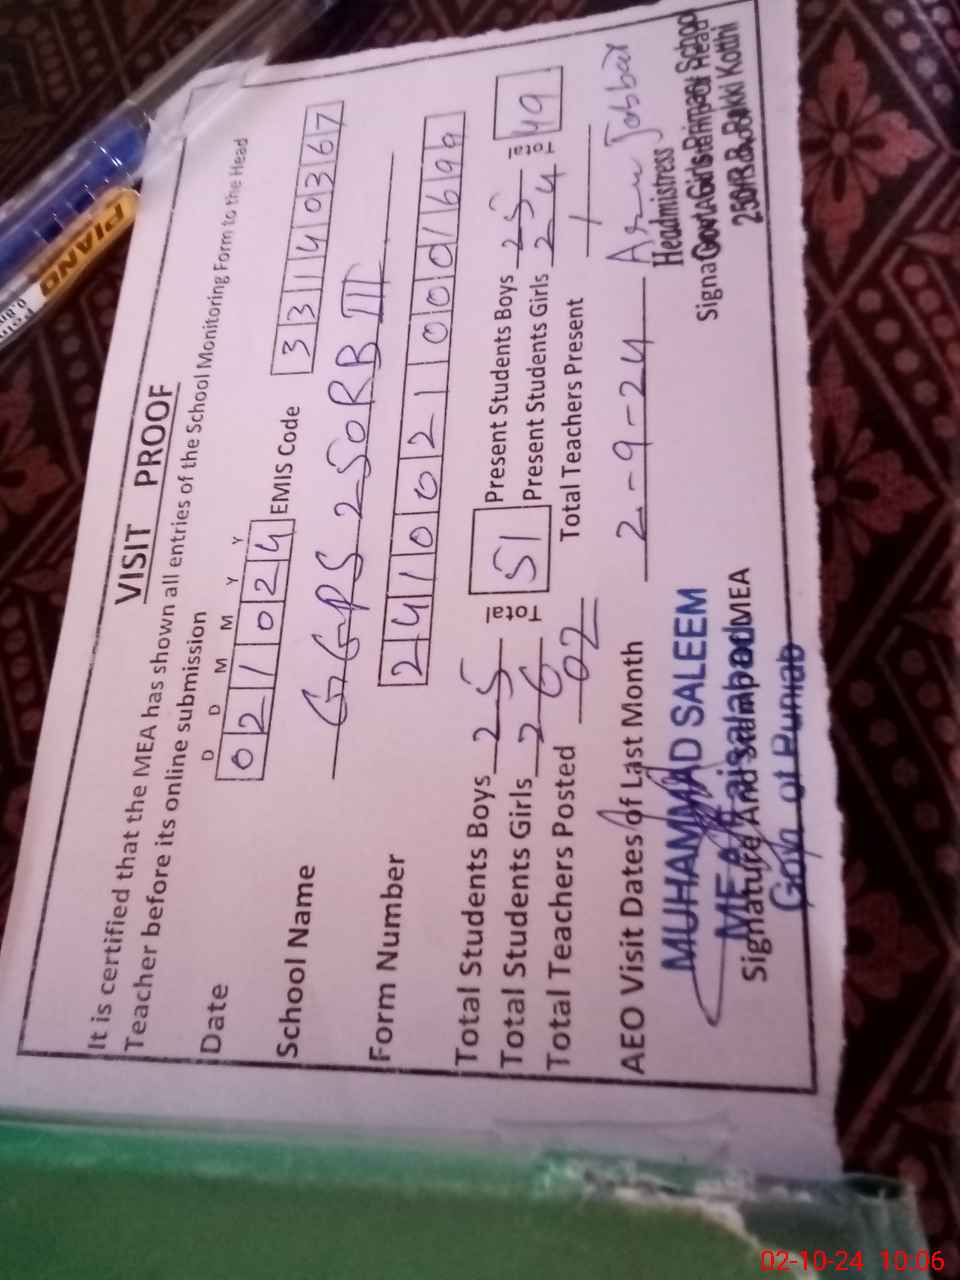 VISIT PROOF
It is certified that the MEA has shown all entries of the School Monitoring Form to the Head
Teacher before its online submission
D D M M Y Y
Date 021024 EMIS Code 33140367
School Name GGPS 250RB III
Form Number
Total Students Boys 25 Total 51 Present Students Boys 25 Total 49
Total Students Girls 26 Present Students Girls 24
Total Teachers Posted 02 Total Teachers Present 1
AEO Visit Dates of Last Month 2-9-24
MUHAMMAD SALEEM
MEA Faisalabad
Signature And Stamp of MEA
Govn of Punjab
Headmistress
Govt. Girls Primary School
250/R.B. Kotthi
PIANO
02-10-24 10:06